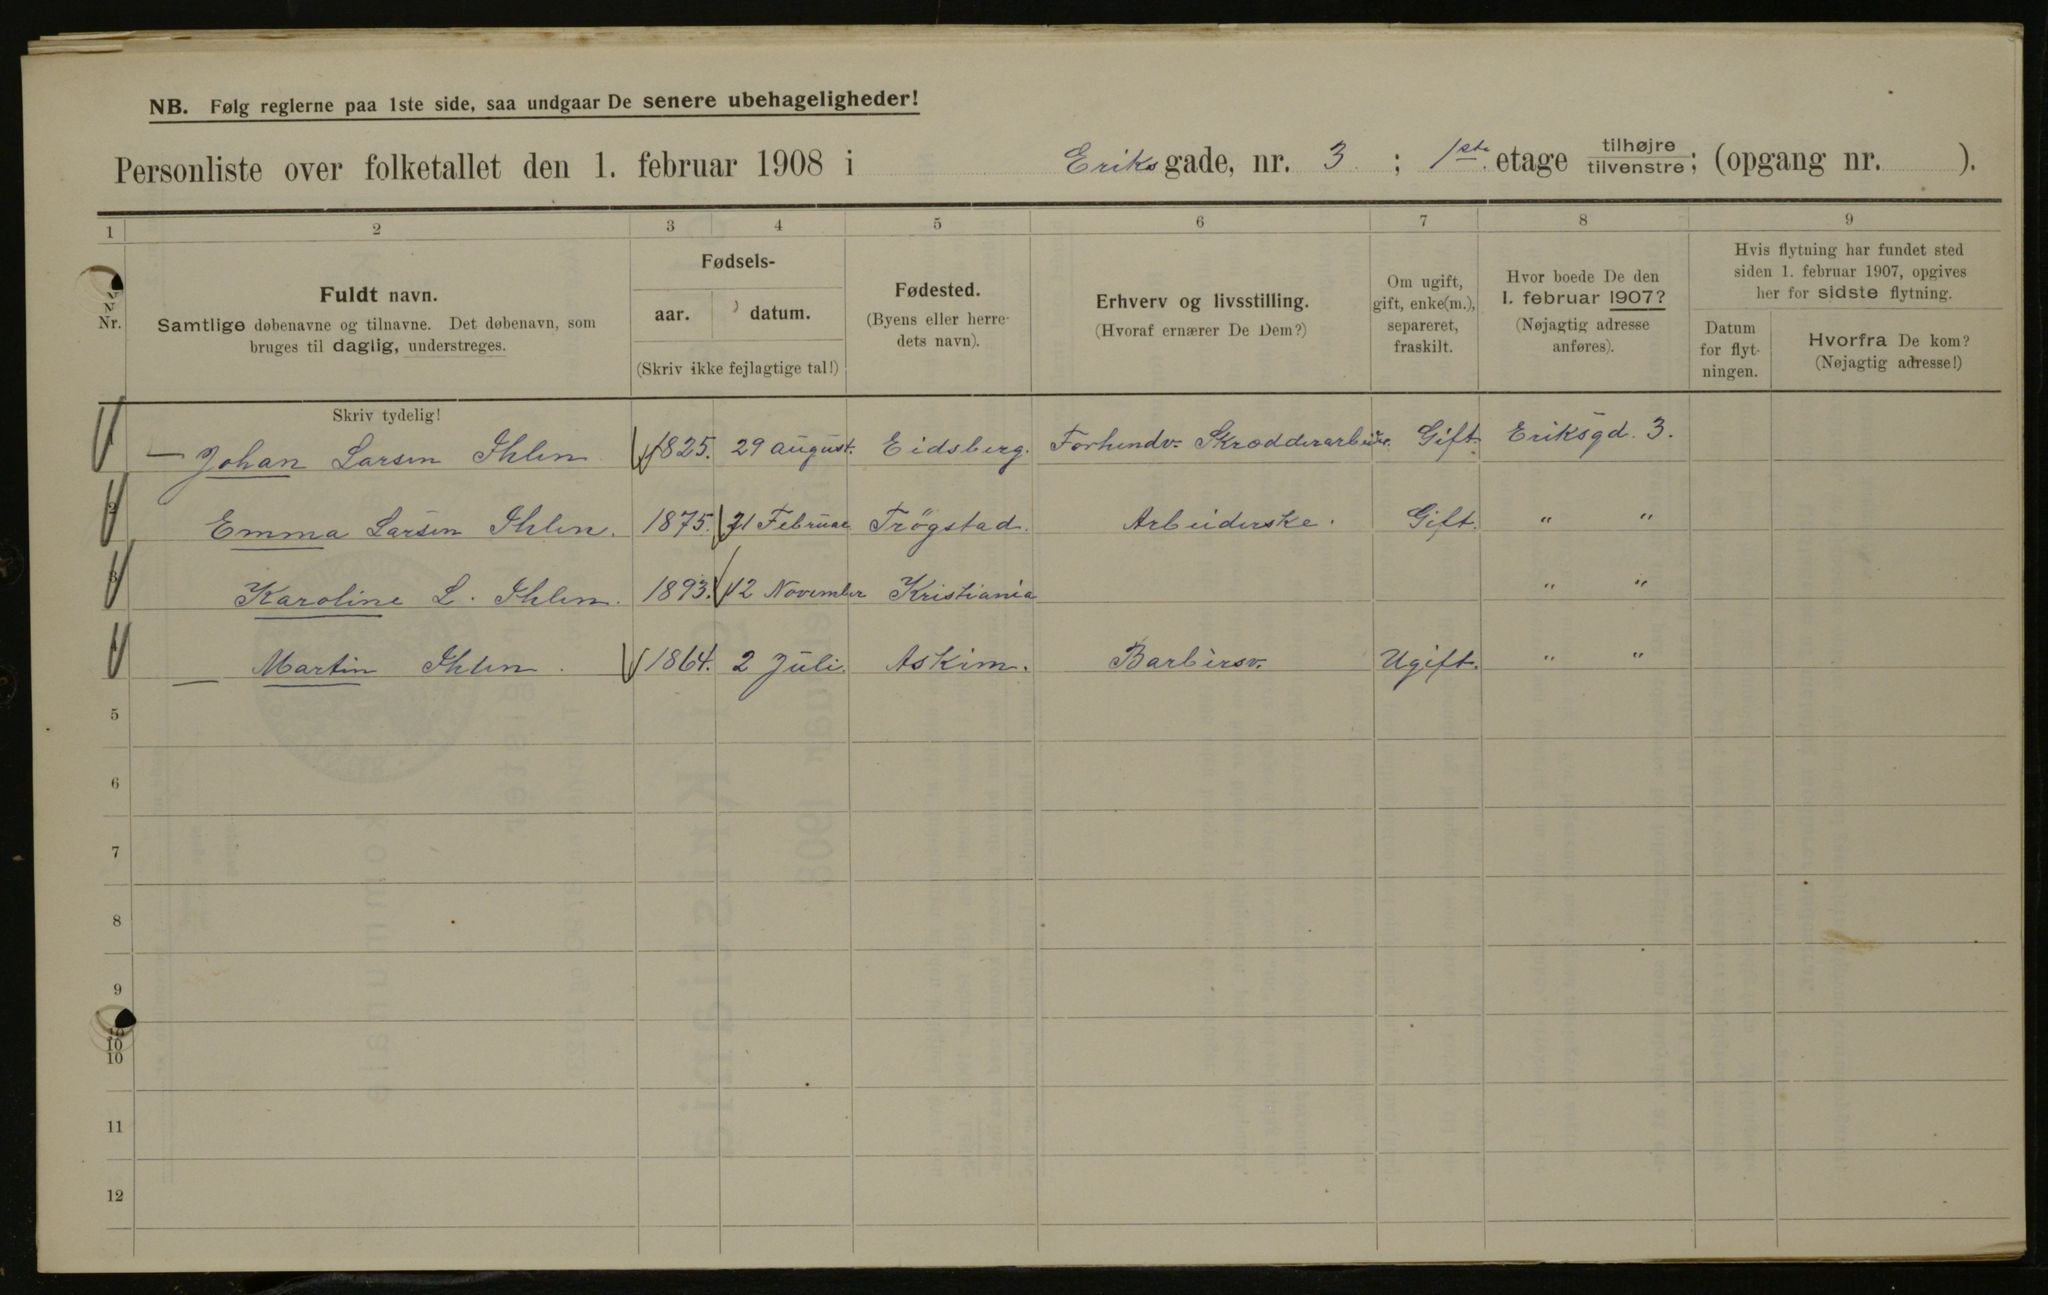 NB. Følg reglerne paa 1ste side, saa undgaar De senere ubehageligheder!
Personliste over folketallet den 1. februar 1908 i Eriks gade, nr. 3 ; 1ste etage tilhøjre / tilvenstre ; (opgang nr. ).
1 2 3 4 5 6 7 8 9
Nr.
Fuldt navn.
Samtlige døbenavne og tilnavne. Det døbenavn, som
bruges til daglig, understreges.
Skriv tydelig!
Fødsels-
aar. datum.
(Skriv ikke fejlagtige tal!)
Fødested.
(Byens eller herre-
dets navn).
Erhverv og livsstilling.
(Hvoraf ernærer De Dem?)
Om ugift,
gift, enke(m.),
separeret,
fraskilt.
Hvor boede De den
1. februar 1907?
(Nøjagtig adresse
anføres).
Hvis flytning har fundet sted
siden 1. februar 1907, opgives
her for sidste flytning.
Datum
for flyt-
ningen.
Hvorfra De kom?
(Nøjagtig adresse!)
1 Johan Larsen Ihlen 1825. 29 august. Eidsberg. Forhendv. Gift. Eriksgd. 3.
2 Emma Larsen Ihlen. 1875. 21 Februar Trögstad. Arbeiderske. Gift. " "
3 Karoline L. Ihlen. 1893. 12 November Kristiania " "
4 Martin Ihlen. 1864. 2 Juli. Askim. Barbersv. Ugift. " "
5
6
7
8
9
10
10
10
11
12